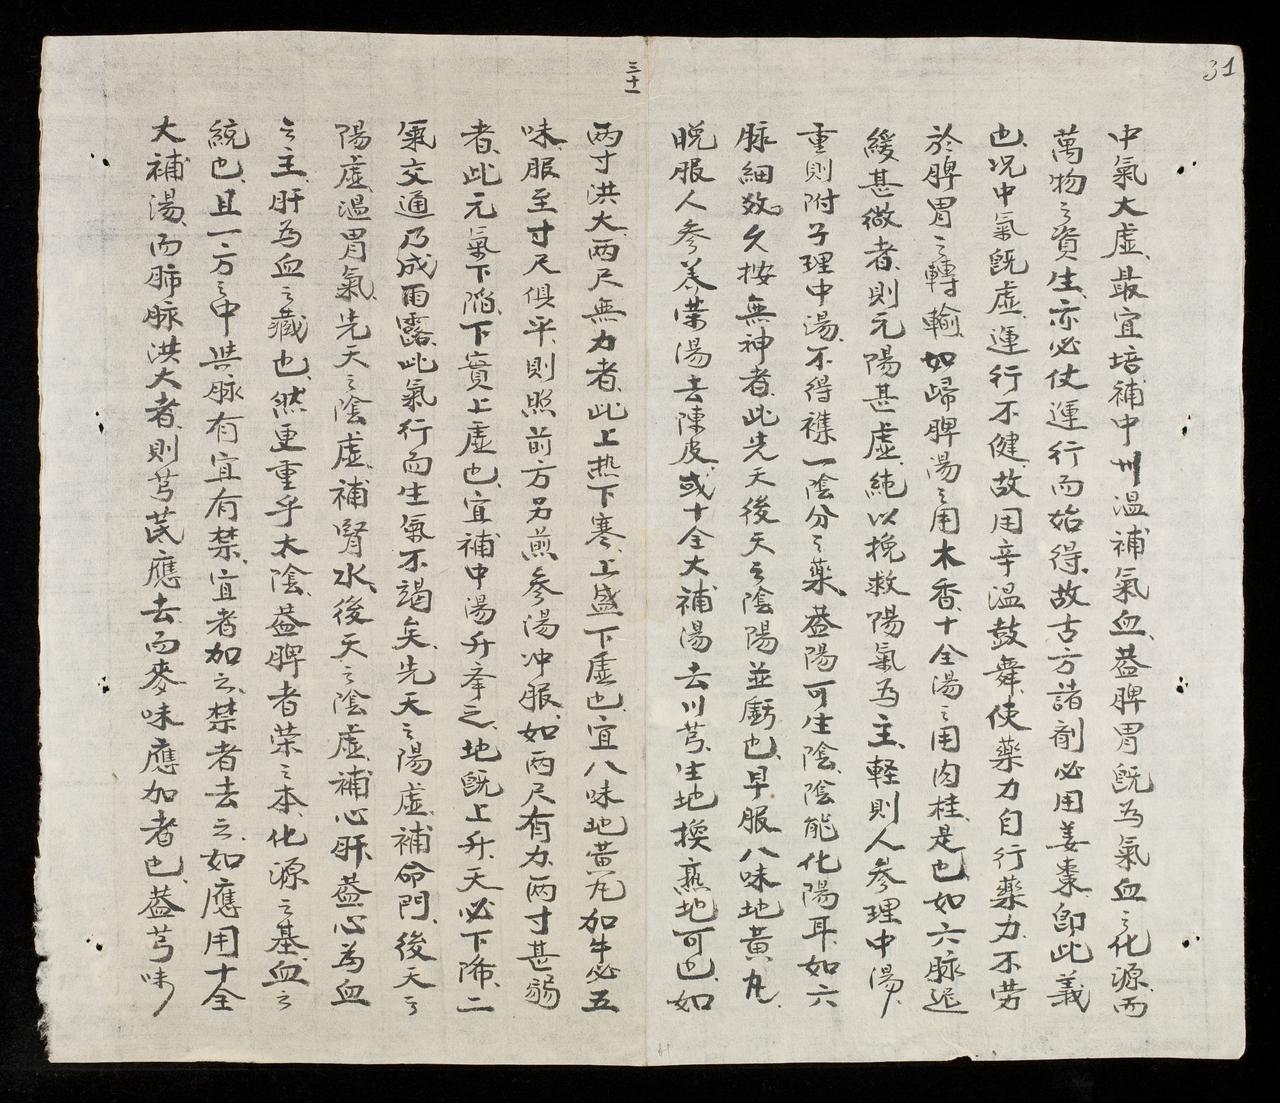 31
三十一
中氣大虛、最宜培補中州溫補氣血、葢脾胃既為氣血之化源、而
萬物之資生、亦必仗運行而始得、故古方諸劑必用姜棗、即此義
也、况中氣既虛、運行不健、故用辛溫鼓舞、使藥力自行藥力、不勞
於脾胃之轉輸、如歸脾湯之用木香、十全湯之用肉桂、是也、如六脉遲
緩甚微者、則元陽甚虛、純以挽救陽氣為主、輕則人參理中湯、
重則附子理中湯、不得襍一陰分之藥、葢陽可生陰、陰能化陽耳、如六
脉細數、久按無神者、此先天後天之陰陽並虧也、早服八味地黃丸、
晩服人參養榮湯去陳皮、或十全大補湯去川芎、生地換熟地可也、如
两寸洪大、两尺無力者、此上熱下寒、上盛下虛也、宜八味地黃丸加牛必五
味、服至寸尺俱平、則照前方另煎參湯冲服、如两尺有力、两寸甚弱
者、此元氣下陷、下實上虛也、宜補中湯升㪯之、地既上升、天必下降、二
氣交通乃成雨露、此氣行而生氣不竭矣、先天之陽虛、補命門、後天之
陽虛、溫胃氣、先天之陰虛、補腎水、後天之陰虛、補心肝、葢心為血
之主、肝為血之藏也、然更重乎太陰、葢脾者榮之本、化源之基、血之
統也、且一方之中、與脉有宜有禁、宜者加之、禁者去之、如應用十全
大補湯、而肺脉洪大者、則芎芪應去、而麥味應加者也、葢芎味